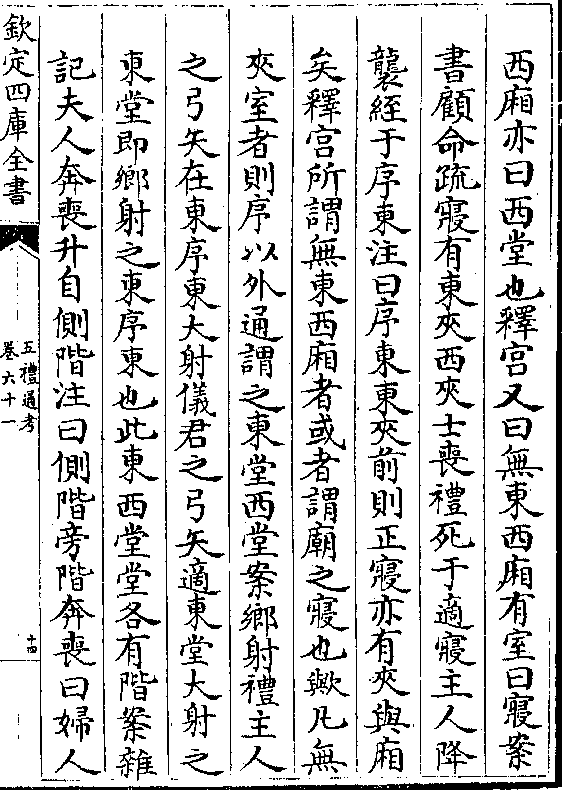 西廂亦曰西堂也釋宫又曰無東西廂有室曰寢案
書顧命疏寢有東夾西夾士喪禮死于適寢主人降
襲絰于序東注曰序東東夾前則正寢亦有夾與廂
矣釋宫所謂無東西廂者或者謂廟之寢也歟凡無
夾室者則序以外通謂之東堂西堂案鄉射禮主人
之弓矢在東序東大射儀君之弓矢適東堂大射之
東堂即鄉射之東序東也此東西堂堂各有階案雜
記夫人奔喪升自側階注曰側階旁階奔喪曰婦人
欽定四庫全書
五禮通考
卷六十一
十四